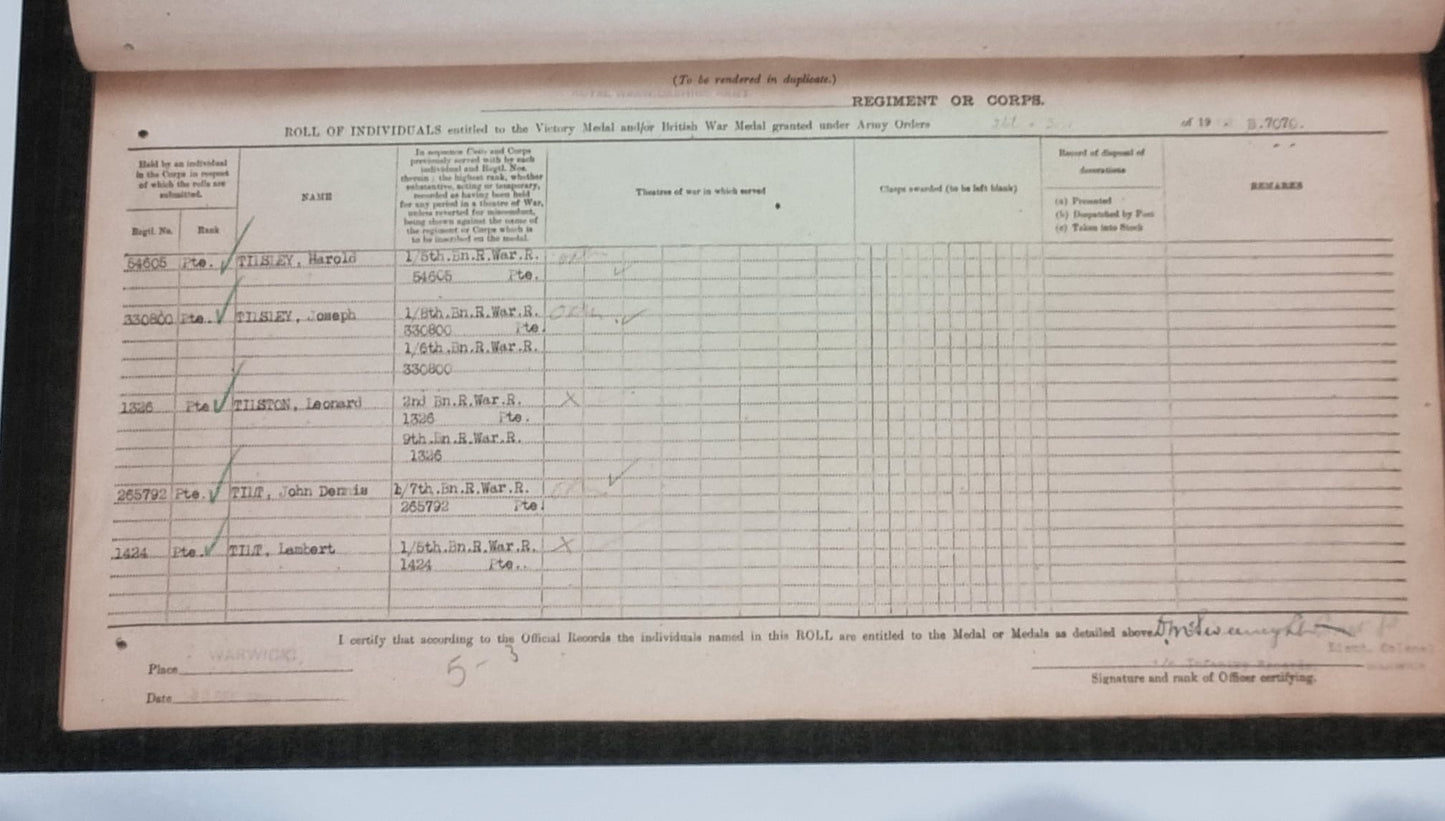 (To be rendered in duplicate.)
REGIMENT OR CORPS.
ROLL OF INDIVIDUALS entitled to the Victory Medal and/or British War Medal granted under Army Orders of 19 B.7070.
Held by an individual
in the Corps in respect
of which the rolls are
submitted.
Regtl. No. Rank
NAME
In respective Units and Corps
previously served with by each
individual and Regtl. Nos.
therein; the highest rank, whether
substantive, acting or temporary,
recorded as having been held
for any period in a theatre of War,
unless reverted for misconduct,
being shown against the name of
the regiment or Corps which is
to be inscribed on the medal.
Theatres of war in which served
Clasps awarded (to be left blank)
Record of disposal of
decorations
(a) Presented
(b) Despatched by Post
(c) Taken into Stock
REMARKS
54605 Pte. TILSLEY, Harold 1/5th.Bn.R.War.R.
54605 Pte.
330800 Pte. TILSLEY, Joseph 1/8th.Bn.R.War.R.
330800 Pte.
1/6th.Bn.R.War.R.
330800
1326 Pte TILSTON, Leonard 2nd Bn.R.War.R. X
1326 Pte.
9th.Bn.R.War.R.
1326
265792 Pte. TILT, John Dennis 2/7th.Bn.R.War.R.
265792 Pte.
1424 Pte. TILT, Lambert 1/5th.Bn.R.War.R. X
1424 Pte.
I certify that according to the Official Records the individuals named in this ROLL are entitled to the Medal or Medals as detailed above.
Lieut. Colonel
Place WARWICK.
5-3
i/c Infantry Records
Signature and rank of Officer certifying.
Date